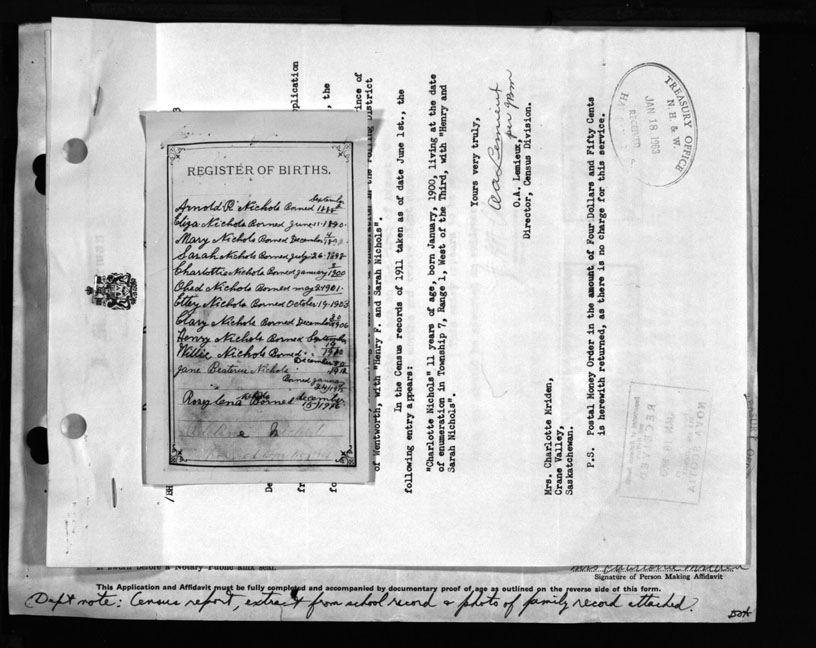 REGISTER OF BIRTHS.
Arnold R Nichols Borned September
Eliza Nichols Borned June 11 1890.
Mary Nichols Borned December
Sarah Nichols Borned July 26
Charlottie Nichols Borned January 1900
Obed Nichols Borned may 2 1901.
Ettey Nichols Borned October 19 1903
Clary Nichols Borned December 1906
Henry Nichols Borned September
Willie Nichols Borned
December
Jane Beatrice Nichols
Borned January
Rosy Lena Nichols Borned december
plication
, the
ince of
of Wentworth, with "Henry F. and Sarah Nichols".
In the Census records of 1911 taken as of date June 1st., the
following entry appears:
"Charlotte Nichols" 11 years of age, born January, 1900, living at the date
of enumeration in Township 7, Range 1, West of the Third, with "Henry and
Sarah Nichols".
Yours very truly,
O.A. Lemieux,
Director, Census Division.
Mrs. Charlotte Mriden,
Crane Valley,
Saskatchewan.
P.S. Postal Money Order in the amount of Four Dollars and Fifty Cents
is herewith returned, as there is no charge for this service.
TREASURY OFFICE
N. H. & W.
JAN 18 1963
RECEIVED
NOVA SCOTIA
RECEIVED
Signature of Person Making Affidavit
This Application and Affidavit must be fully completed and accompanied by documentary proof of age as outlined on the reverse side of this form.
Dept note: Census report, extract from school record & photo of family record attached.